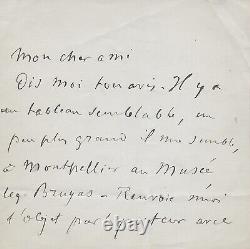 Mon cher ami
Dis moi ton avis. Il y a
un tableau semblable, un
peu plus grand il me semble,
à Montpellier au Musée
leg. Bruyas - Renvoie moi
l'objet par le porteur avec